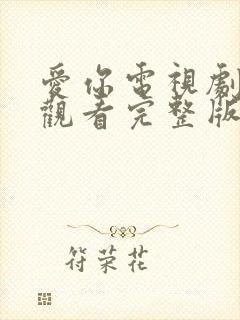 愛你電視劇
觀看完整版
符荣花